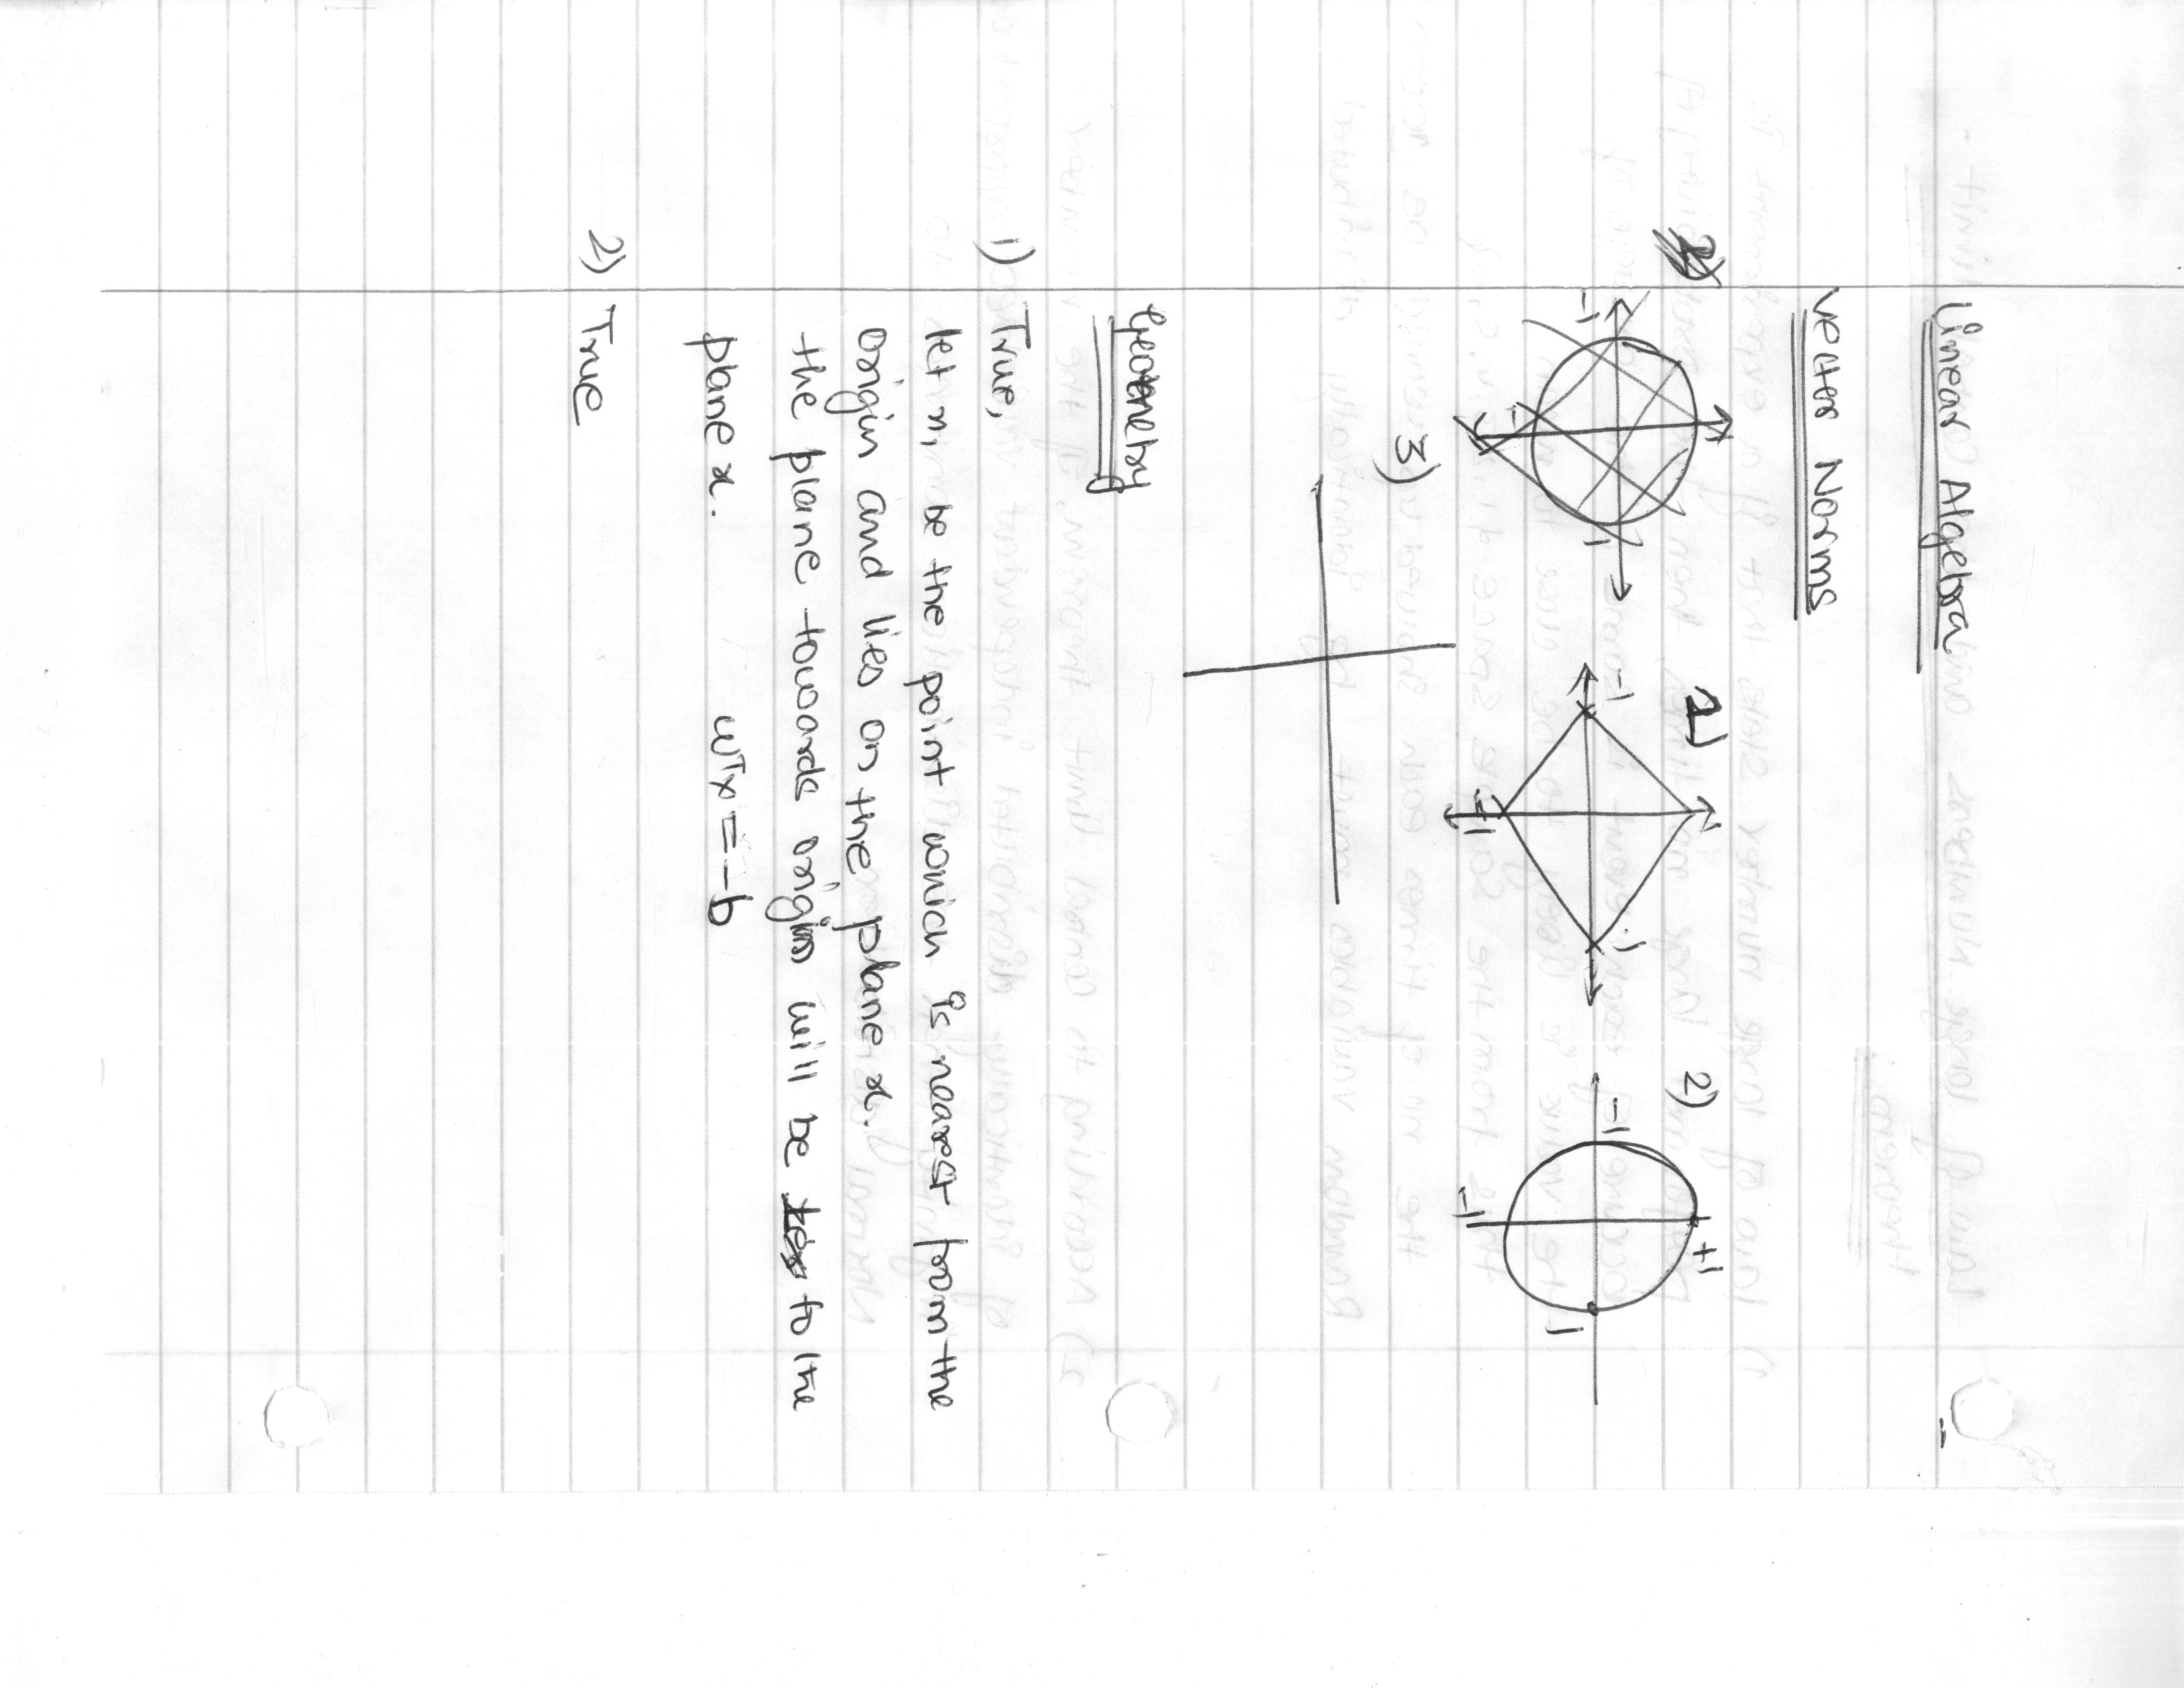 Linear Algebra
Vector Norms
1)
2)
-1
1
-1
-1
1
-1
-1
+1
1
-1
3)
Geometry
1) True,
let m, be the point which is nearest from the
origin and lies on the plane x.
the plane towards origin will be to the
plane x. wᵀx = -b
2) True